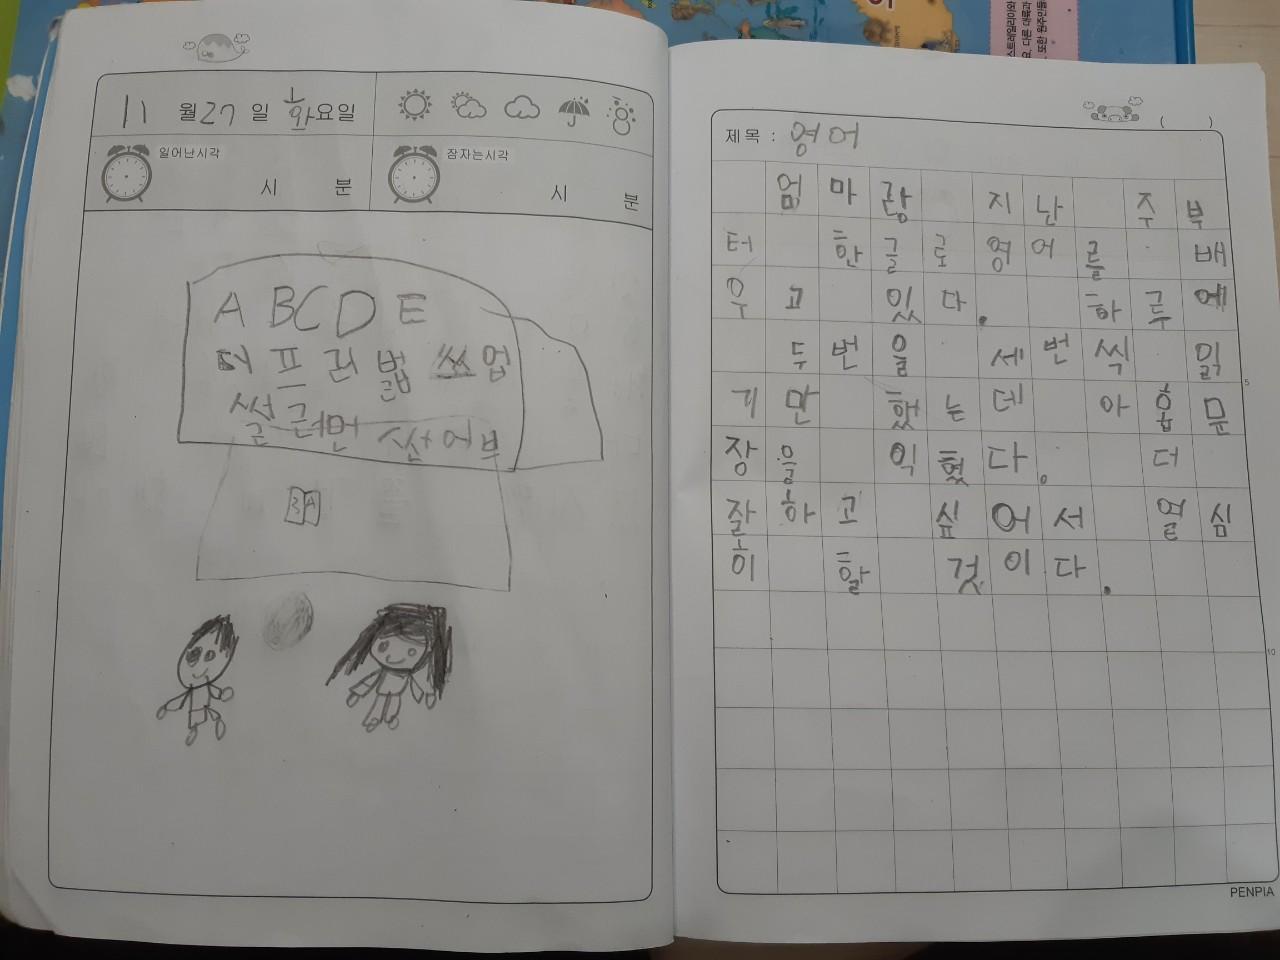 11 월 27 일 화요일
일어난시각
시 분
잠자는시각
시 분
A BCD E
더 프러블 쓰업
썰러먼 산어부
제목 : 영어
( )
엄마랑 지난 주부
터 한글로 영어를 배
우고 있다. 하루에
두번을 세번씩 읽
기만 했는데 아홉문
장을 익혔다. 더
잘하고 싶어서 열심
히 할 것이다.
5
10
PENPIA